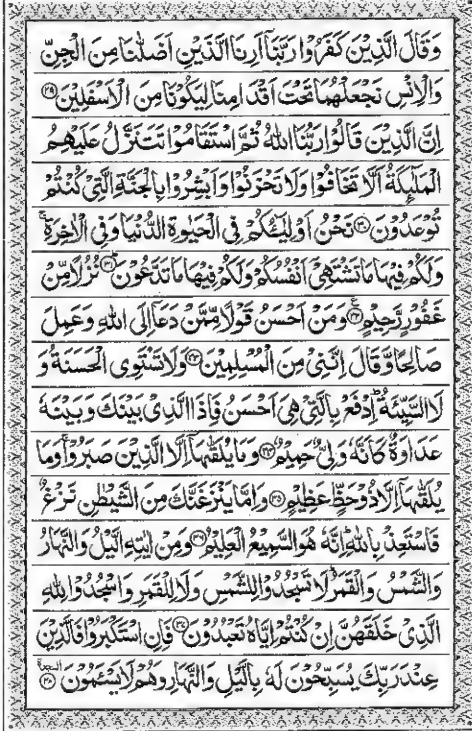 وَقَالَ الَّذِيْنَ كَفَرُوْا رَبَّنَاۤ اَرِنَا الَّذَيْنِ اَضَلّٰنَا مِنَ الْجِنِّ
وَالْاِنْسِ نَجْعَلْهُمَا تَحْتَ اَقْدَامِنَا لِيَكُوْنَا مِنَ الْاَسْفَلِيْنَ ﴿۲۹﴾
اِنَّ الَّذِيْنَ قَالُوْا رَبُّنَا اللّٰهُ ثُمَّ اسْتَقَامُوْا تَتَنَزَّلُ عَلَيْهِمُ
الْمَلٰٓئِكَةُ اَلَّا تَخَافُوْا وَلَا تَحْزَنُوْا وَاَبْشِرُوْا بِالْجَنَّةِ الَّتِيْ كُنْتُمْ
تُوْعَدُوْنَ ﴿۳۰﴾ نَحْنُ اَوْلِيٰٓؤُكُمْ فِي الْحَيٰوةِ الدُّنْيَا وَفِي الْاٰخِرَةِ ۚ
وَلَكُمْ فِيْهَا مَا تَشْتَهِيْۤ اَنْفُسُكُمْ وَلَكُمْ فِيْهَا مَا تَدَّعُوْنَ ﴿۳۱﴾ نُزُلًا مِّنْ
غَفُوْرٍ رَّحِيْمٍ ﴿۳۲﴾ ع وَمَنْ اَحْسَنُ قَوْلًا مِّمَّنْ دَعَاۤ اِلَى اللّٰهِ وَعَمِلَ
صَالِحًا وَّقَالَ اِنَّنِيْ مِنَ الْمُسْلِمِيْنَ ﴿۳۳﴾ وَلَا تَسْتَوِي الْحَسَنَةُ وَ
لَا السَّيِّئَةُ ؕ اِدْفَعْ بِالَّتِيْ هِيَ اَحْسَنُ فَاِذَا الَّذِيْ بَيْنَكَ وَبَيْنَهٗ
عَدَاوَةٌ كَاَنَّهٗ وَلِيٌّ حَمِيْمٌ ﴿۳۴﴾ وَمَا يُلَقّٰىهَاۤ اِلَّا الَّذِيْنَ صَبَرُوْا ۚ وَمَا
يُلَقّٰىهَاۤ اِلَّا ذُوْ حَظٍّ عَظِيْمٍ ﴿۳۵﴾ وَاِمَّا يَنْزَغَنَّكَ مِنَ الشَّيْطٰنِ نَزْغٌ
فَاسْتَعِذْ بِاللّٰهِ ؕ اِنَّهٗ هُوَ السَّمِيْعُ الْعَلِيْمُ ﴿۳۶﴾ وَمِنْ اٰيٰتِهِ الَّيْلُ وَالنَّهَارُ
وَالشَّمْسُ وَالْقَمَرُ ؕ لَا تَسْجُدُوْا لِلشَّمْسِ وَلَا لِلْقَمَرِ وَاسْجُدُوْا لِلّٰهِ
الَّذِيْ خَلَقَهُنَّ اِنْ كُنْتُمْ اِيَّاهُ تَعْبُدُوْنَ ﴿۳۷﴾ فَاِنِ اسْتَكْبَرُوْا فَالَّذِيْنَ
عِنْدَ رَبِّكَ يُسَبِّحُوْنَ لَهٗ بِالَّيْلِ وَالنَّهَارِ وَهُمْ لَا يَسْئَمُوْنَ ﴿۳۸﴾ السجدة